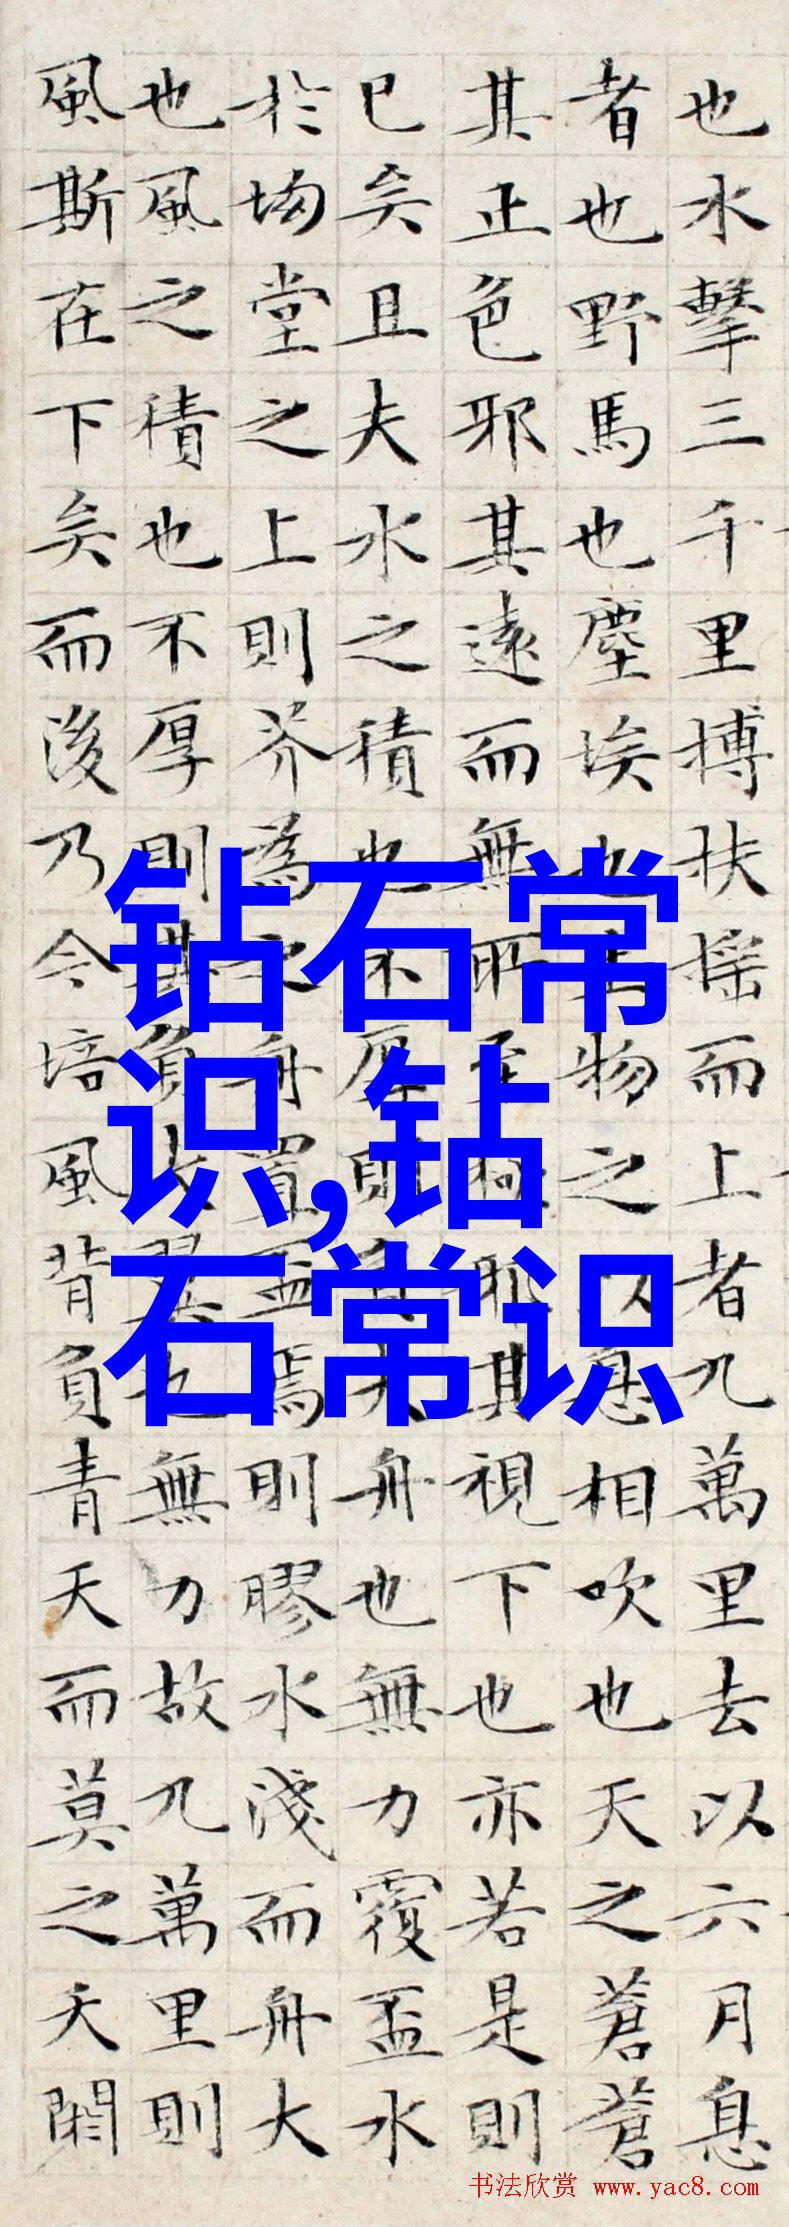 也水擊三千里搏扶摇而上者九萬里去以六月息
者也野馬也塵埃也生物之以息相吹也天之蒼蒼
其正色邪其遠而無所至極邪其視下也亦若是則
已矣且夫水之積也不厚則負大舟也無力覆盃水
於坳堂之上則芥為之舟置盃焉則膠水淺而舟大
也風之積也不厚則其負大翼也無力故九萬里則
風斯在下矣而後乃今培風背負青天而莫之夭閼
钻石常
识,钻
石常识
书法欣赏 www.yac8.com